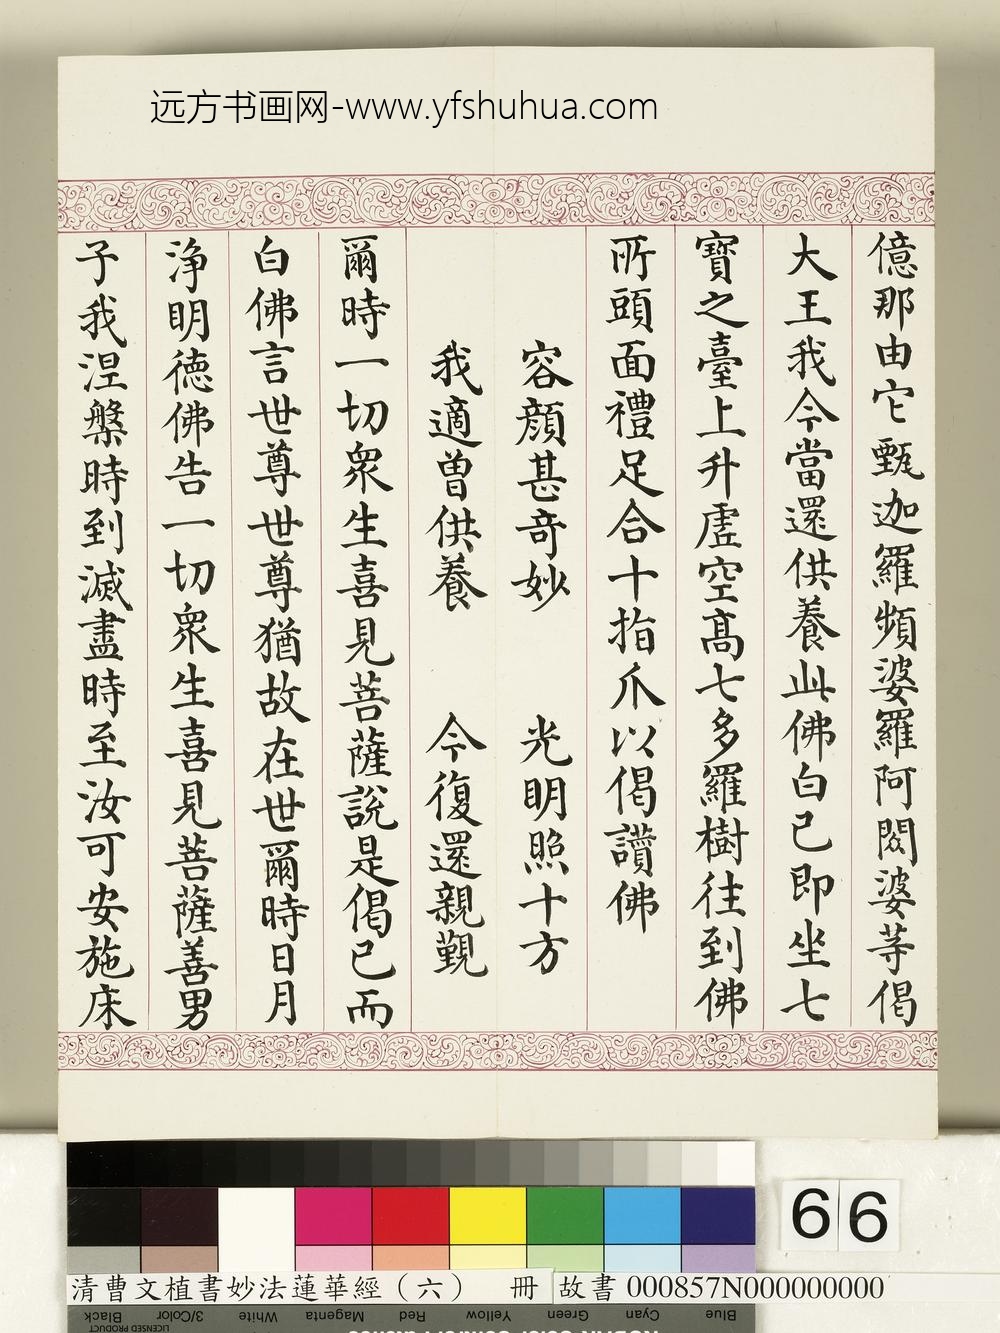 远方书画网-www.yfshuhua.com
億那由它甄迦羅頻婆羅阿閦婆等偈
大王我今當還供養此佛白已即坐七
寶之臺上升虛空高七多羅樹往到佛
所頭面禮足合十指爪以偈讚佛
容顏甚奇妙　光明照十方
我適曾供養　今復還親覲
爾時一切眾生喜見菩薩說是偈已而
白佛言世尊世尊猶故在世爾時日月
淨明德佛告一切眾生喜見菩薩善男
子我涅槃時到滅盡時至汝可安施床
66
清曹文植書妙法蓮華經（六）　冊
故書 000857N000000000
Blue Cyan Green Yellow Red Magenta White 3/Color Black
LICENSED PRODUCT